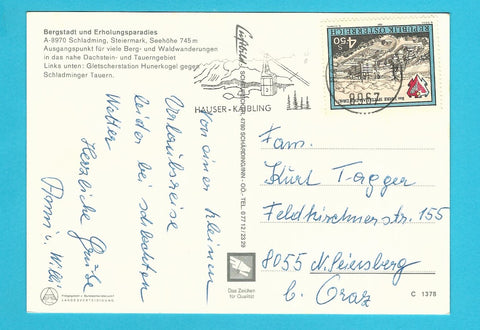 Bergstadt und Erholungsparadies
A-8970 Schladming, Steiermark, Seehöhe 745 m
Ausgangspunkt für viele Berg- und Waldwanderungen
in das nahe Dachstein- und Tauerngebiet
Links unten: Gletscherstation Hunerkogel gegen
Schladminger Tauern.
HAUSER-KAIBLING
REPUBLIK ÖSTERREICH
4.50
8967
Von einer kleinen
Urlaubsreise
leider bei schlechten
Wetter
Herzliche Grüße
Anni u. Willi
SCHÄRDING/INN - OÖ - TEL. 0 77 12 / 23 29
Fam.
Kurt Tagger
Feldkirchnerstr. 155
8055 N. Seiersberg
b. Graz
Das Zeichen
für Qualität
C 1378